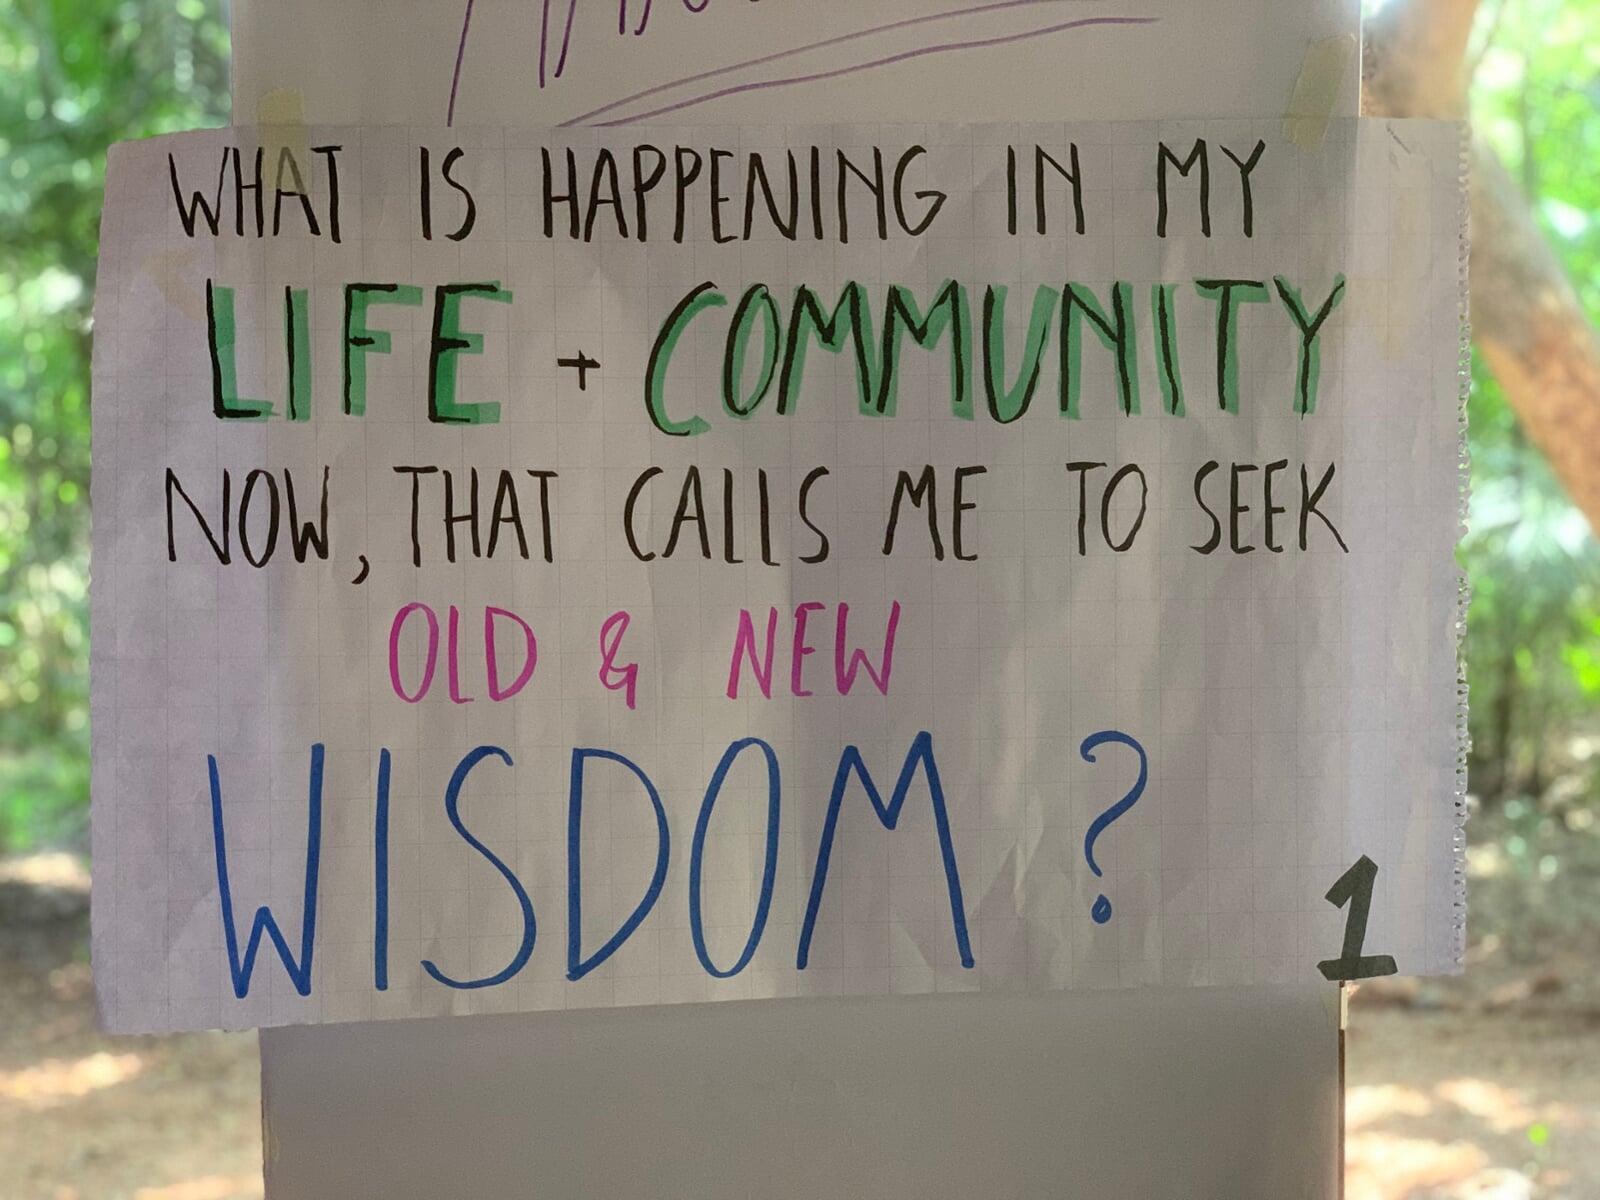 WHAT IS HAPPENING IN MY
LIFE + COMMUNITY
NOW, THAT CALLS ME TO SEEK
OLD & NEW
WISDOM ?
1